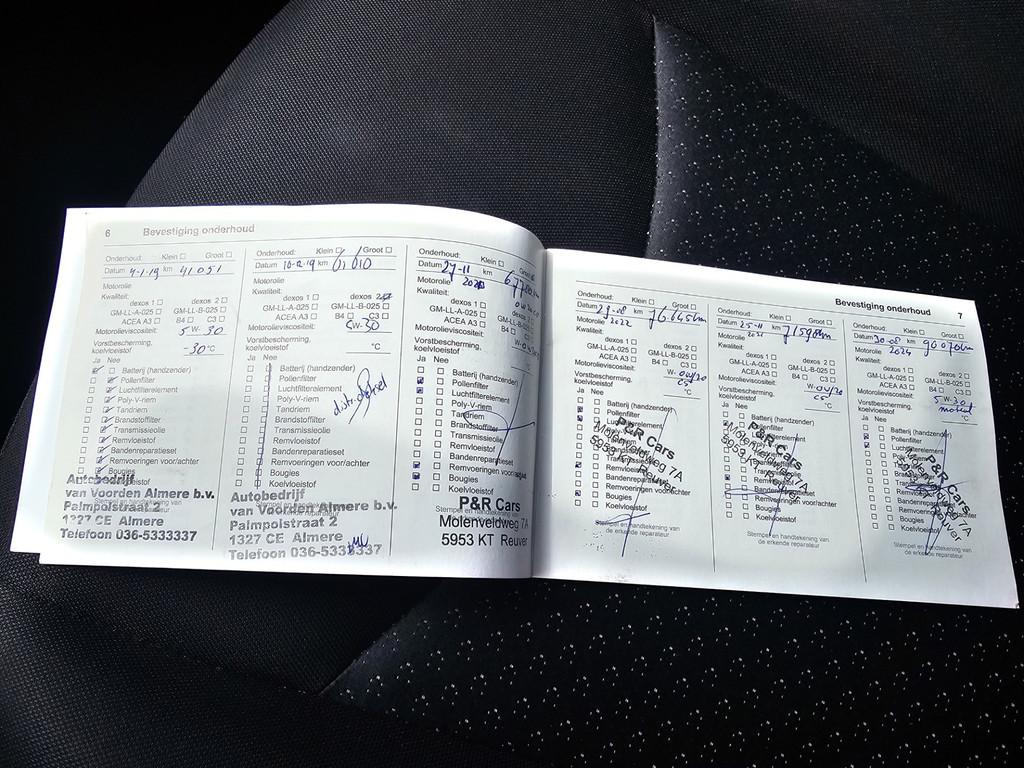 6 Bevestiging onderhoud
Onderhoud: Klein Groot
Datum 4-1-19 km 41051
Motorolie
Kwaliteit:
dexos 1 dexos 2
GM-LL-A-025 GM-LL-B-025
ACEA A3 B4 C3
Motorolieviscositeit:
5 W- 30
Vorstbescherming,
koelvloeistof -30 °C
Ja Nee
Batterij (handzender)
Pollenfilter
Luchtfilterelement
Poly-V-riem
Tandriem
Brandstoffilter
Transmissieolie
Remvloeistof
Bandenreparatieset
Remvoeringen voor/achter
Bougies
Koelvloeistof
Autobedrijf
van Voorden Almere b.v.
Palmpolstraat 2
1327 CE Almere
Telefoon 036-5333337
Onderhoud: Klein Groot
Datum 10-12-19 km 61610
Motorolie
Kwaliteit:
dexos 1 dexos 2
GM-LL-A-025 GM-LL-B-025
ACEA A3 B4 C3
Motorolieviscositeit:
5W-30
Vorstbescherming,
koelvloeistof °C
Ja Nee
Batterij (handzender)
Pollenfilter
Luchtfilterelement
Poly-V-riem
Tandriem
Brandstoffilter
Transmissieolie
Remvloeistof
Bandenreparatieset
Remvoeringen voor/achter
Bougies
Koelvloeistof
Autobedrijf
van Voorden Almere b.v.
Palmpolstraat 2
1327 CE Almere
Telefoon 036-5333337
Onderhoud: Klein Groot
Datum 27-11 km
Motorolie
Kwaliteit:
dexos 1
GM-LL-A-025
ACEA A3 B4 C3
Motorolieviscositeit:
Vorstbescherming,
koelvloeistof °C
Ja Nee
Batterij (handzender)
Pollenfilter
Luchtfilterelement
Poly-V-riem
Tandriem
Brandstoffilter
Transmissieolie
Remvloeistof
Bandenreparatieset
Remvoeringen voor/achter
Bougies
Koelvloeistof
Stempel en handtekening van
P&R Cars
Molenveldweg 7A
5953 KT Reuver
Bevestiging onderhoud 7
Onderhoud: Klein Groot
Datum 29-08 km 76645km
Motorolie 2022
Kwaliteit:
dexos 1 dexos 2
GM-LL-A-025 GM-LL-B-025
ACEA A3 B4 C3
Motorolieviscositeit:
W- 0W/20
Vorstbescherming,
koelvloeistof °C
Ja Nee
Batterij (handzender)
Pollenfilter
Remvoeringen voor/achter
Bougies
Koelvloeistof
P&R Cars
Molenveldweg 7A
5953 KT Reuver
Stempel en handtekening van
de erkende reparateur
Onderhoud: Klein Groot
Datum 25-11 km 71598km
Motorolie 2021
Kwaliteit:
dexos 1 dexos 2
GM-LL-A-025 GM-LL-B-025
ACEA A3 B4 C3
Motorolieviscositeit:
W- 0W/20
Vorstbescherming,
koelvloeistof °C
Ja Nee
Batterij (handzender)
Bandenreparatieset
Remvoeringen voor/achter
Bougies
Koelvloeistof
P&R Cars
Molenveldweg 7A
5953 KT Reuver
Stempel en handtekening van
de erkende reparateur
Onderhoud: Klein Groot
Datum 30-08 km 90070km
Motorolie 2024
Kwaliteit:
dexos 1 dexos 2
GM-LL-A-025 GM-LL-B-025
ACEA A3 B4 C3
Motorolieviscositeit:
5 W-30
Vorstbescherming, mobil
koelvloeistof °C
Ja Nee
Batterij (handzender)
Pollenfilter
Luchtfilterelement
Poly-V-riem
Tandriem
Bougies
Koelvloeistof
P&R Cars
Molenveldweg 7A
5953 KT Reuver
Stempel en handtekening van
de erkende reparateur